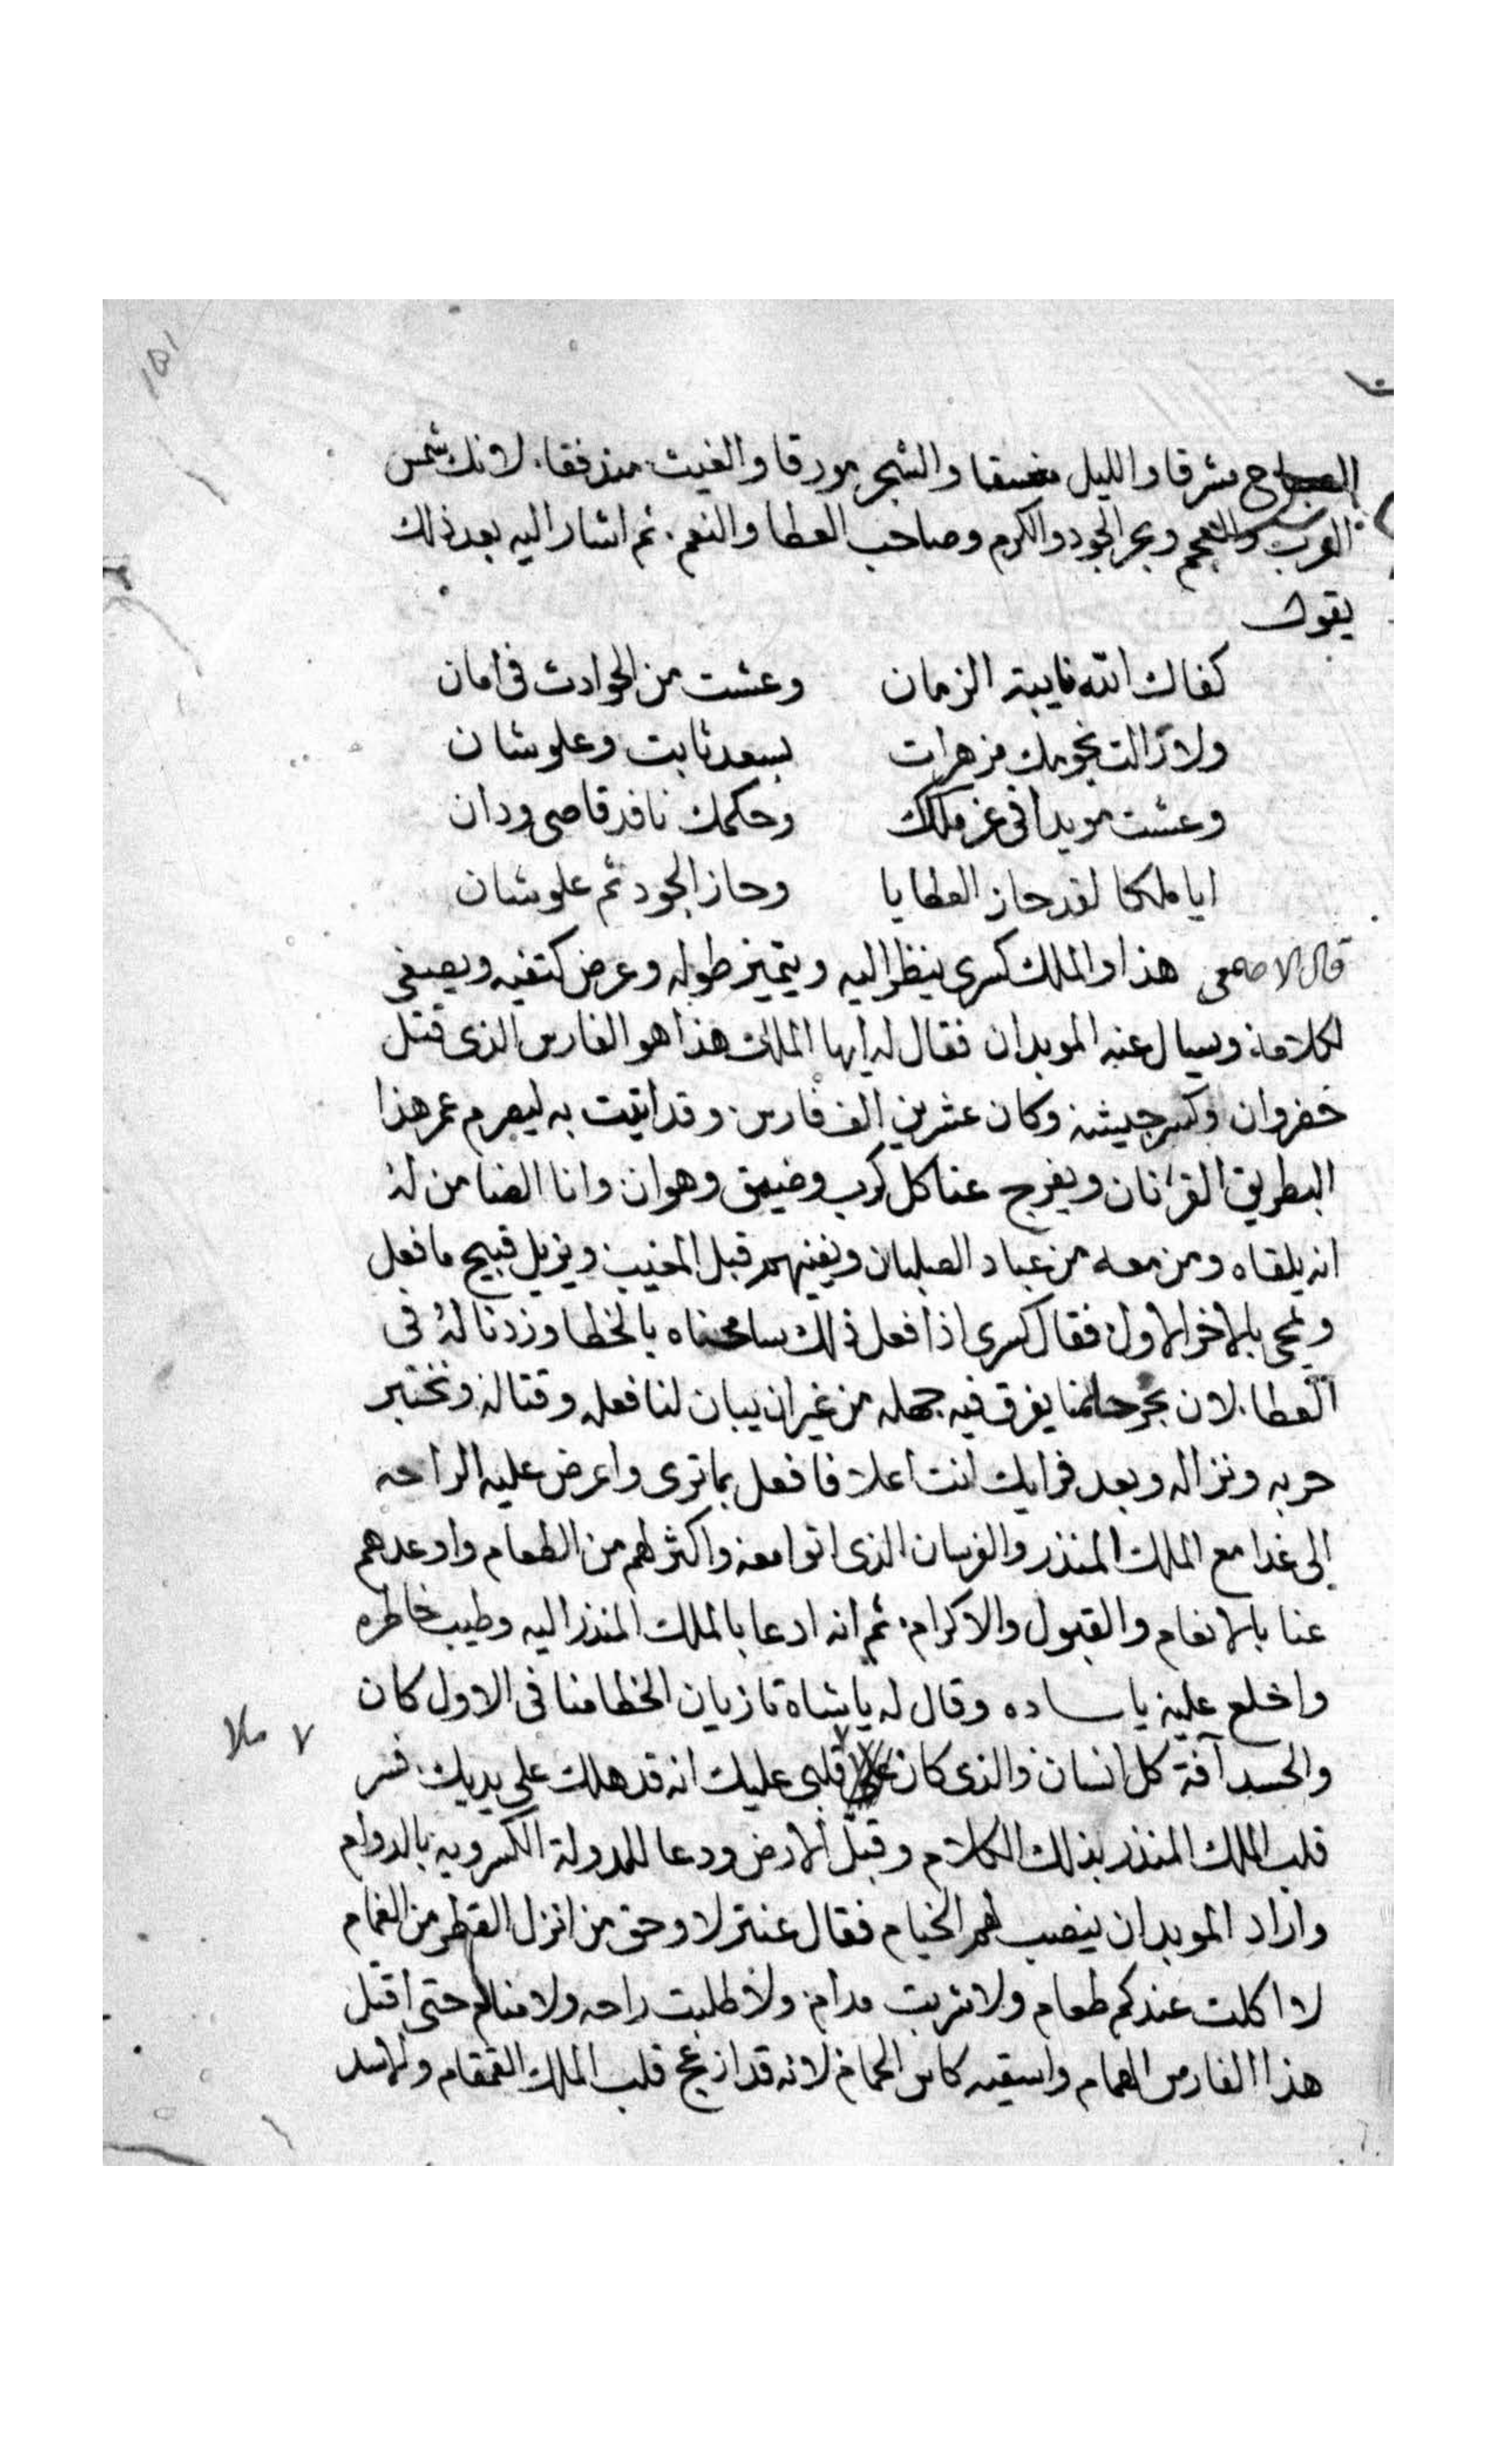 الصباح مشرقا والليل مغسقا والشجر مورقا والغيث مندفقا. لانك شمس
العرب والعجم وبحر الجود والكرم وصاحب العطا والنعم. ثم اشار اليه بعد ذلك
يقول
كفاك الله نايبة الزمان وعشت من الحوادث فى امان
ولا زالت نجومك مزهرات بسعد ثابت وعلو شان
وعشت مويدا فى عز ملكك وحكمك نافد قاصى ودان
ايا ملكا لقد حاز العطايا وحاز الجود ثم علو شان
قال الاصمعى هذا والملك كسرى ينظر اليه ويتميز طوله وعرض كتفيه ويصغى
لكلامه ويسال عنه الموبدان فقال له ايها الملك هذا هو الفارس الذى قتل
خضروان وكسر جيشه وكان عشرين الف فارس وقد اتيت به ليصرم عمر هذا
البطريق القرنان ويفرج عنا كل كرب وضيق وهوان وانا الضامن له
انه يلقاه ومن معه من عباد الصلبان ويفنيهم قبل المغيب ويزيل قبيح ما فعل
ويمحى بالاخر الاول فقال كسرى اذا فعل ذلك سامحناه بالخطا وزدنا له فى
العطا. لان بحر حلمنا يغرق فيه جهله من غير ان يبان لنا فعله وقتاله ونختبر
حربه ونزاله وبعد فرايك انت اعلا فافعل بما ترى واعرض عليه الراحه
الى غدا مع الملك المنذر والفرسان الذى اتوا معه واكثر لهم من الطعام واوعدهم
عنا بالانعام والقبول والاكرام. ثم انه ادعا بالملك المنذر اليه وطيب خاطره
واخلع عليه ياساده وقال له ياشاه تازيان الخطا منا فى الاول كان
والحسد آفة كل انسان والذى كان ملا قلبى عليك انه قد هلك على يديك. فسر
قلب الملك المنذر بذلك الكلام وقبل الارض ودعا للدولة الكسرويه بالدوام
واراد الموبدان ينصب لهم الخيام فقال عنتر لا وحق من انزل القطر من الغمام
لا اكلت عندكم طعام ولا شربت مدام ولا طلبت راحه ولا منام حتى اقتل
هذا الفارس الهمام واسقيه كاس الحمام لانه قد ازعج قلب الملك القمقام والاسد